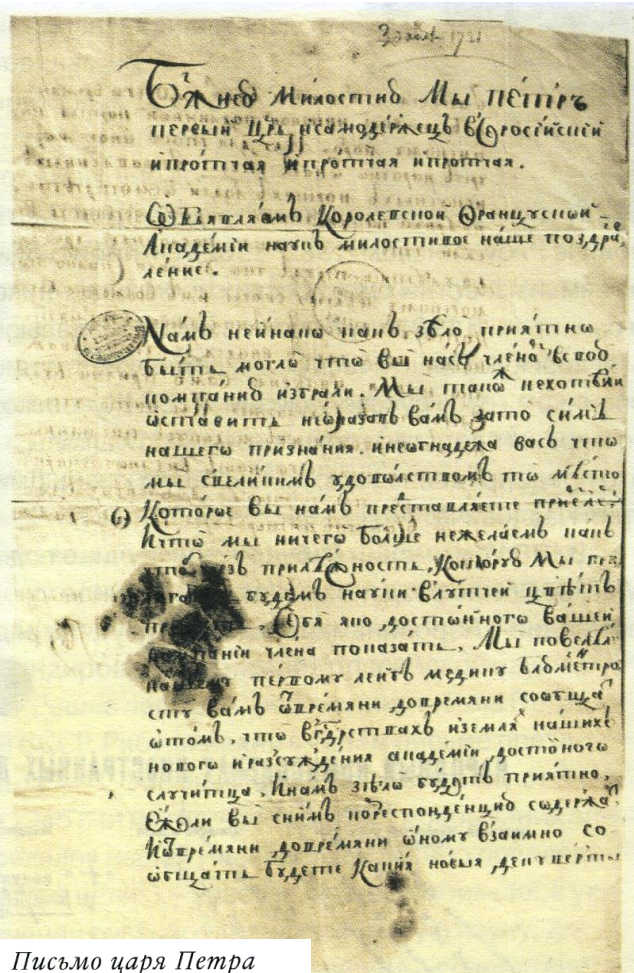 3 […] 1721
Бжиею Милостию Мы ПЕТРЪ
первый Црь исамодержецъ всеросийский
ипротчая ипротчая ипротчая.
Объявляемъ Королевской Французкой
Академии наукъ милостивое наше поздра
ление.
Намъ неинако какъ зѣло приятно
быть могло что вы насъ члено всвою
компанию избрали. Мы також нехотѣли
оставить неоказавъ вамъ зато симъ
нашего признания. инеогнадежа васъ что
мы свеликимъ удоволствомъ то мѣсто
Которое вы намъ преставляете приемле
Ичто мы ничего болше нежелаемъ какъ
чтоб […] прилѣжность, Которую Мы […]
[…] будемъ науки влутчей цвѣтъ
[…]. Себя яко достойного вашей
компании члена показать. Мы повелѣли
нашему первому леибъ медику Блюментро
сту вамъ овремяни довремяни сообща
отомъ, что вгдрствахъ иземля нашихъ
нового иразсуждения академии достойного
случитца. Инамъ зѣло будетъ приятно.
Ежели вы снимъ корреспонденцию содержа
Иовремяни довремяни оному взаимно со
общать будете Какия новыя декуверты
Письмо царя Петра